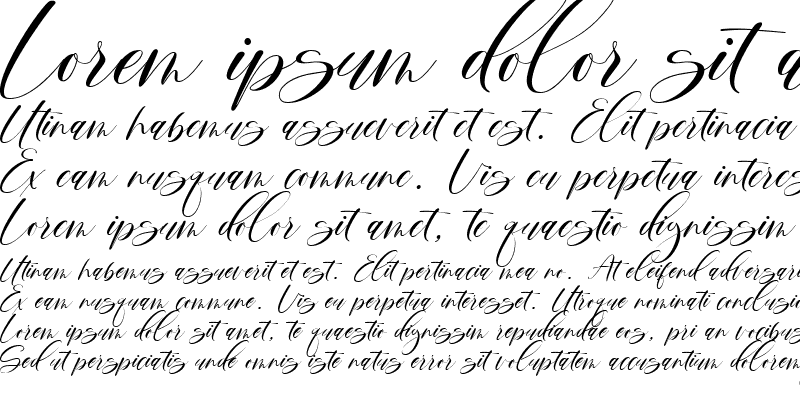 Lorem ipsum dolor sit a
Utinam habemus assueverit et est. Elit pertinacia
Ex eam nusquam commune. Vis eu perpetua interes
Lorem ipsum dolor sit amet, te quaestio dignissim
Utinam habemus assueverit et est. Elit pertinacia mea no. At eleifend adversari
Ex eam nusquam commune. Vis eu perpetua interesset. Utroque nominati conclusio
Lorem ipsum dolor sit amet, te quaestio dignissim repudiandae eos, pri an vocibus
Sed ut perspiciatis unde omnis iste natus error sit voluptatem accusantium dolorem